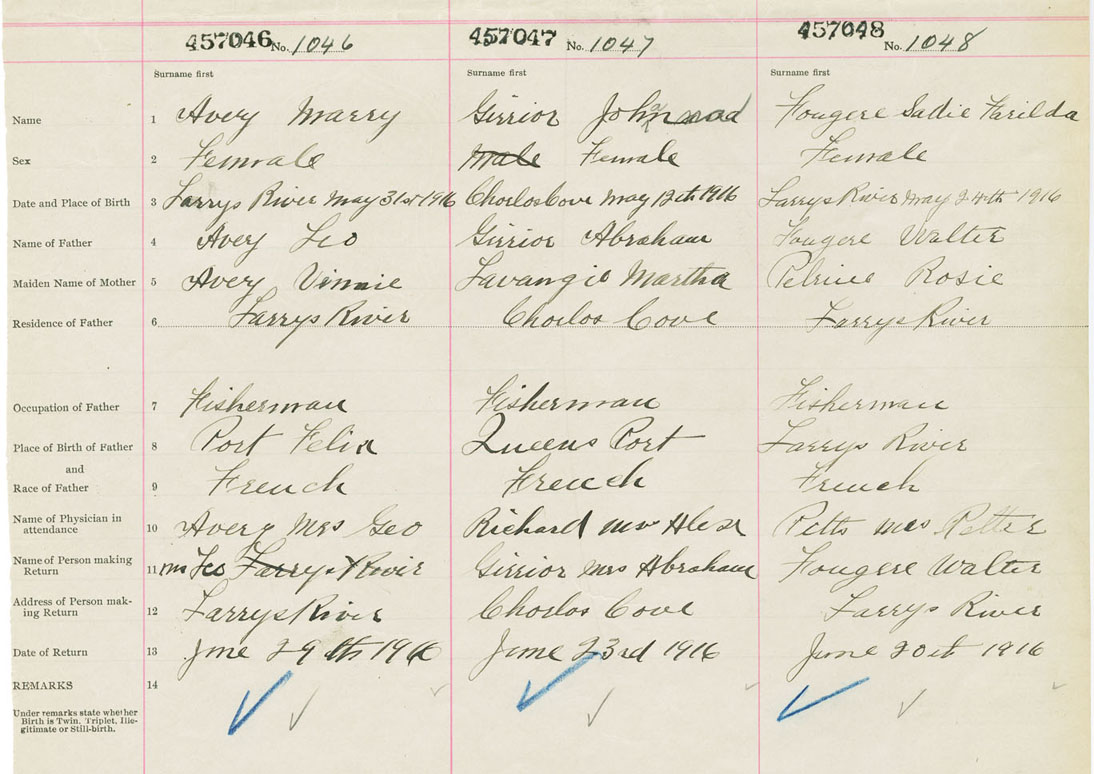 457046 No. 1046 457047 No. 1047 457048 No. 1048
Surname first Surname first Surname first
Name 1 Avery Marry Girrior Fougere Sadie Farilda
Sex 2 Female Male Female Female
Date and Place of Birth 3 Larrys River May 31st 1916 Charlos Cove May 12th 1916 Larrys River May 24th 1916
Name of Father 4 Avery Leo Girrior Abraham Fougere Walter
Maiden Name of Mother 5 Avery Vinnie Lavangie Martha Pelrine Rosie
Residence of Father 6 Larrys River Charlos Cove Larrys River
Occupation of Father 7 Fisherman Fisherman Fisherman
Place of Birth of Father 8 Port Felix Queens Port Larrys River
and
Race of Father 9 French French French
Name of Physician in
attendance 10 Avery Mrs Geo Richard Mrs Alex Petts Mrs
Name of Person making
Return 11 Mrs Leo Larrys River Girrior Mrs Abraham Fougere Walter
Address of Person mak-
ing Return 12 Larrys River Charlos Cove Larrys River
Date of Return 13 June 29th 1916 June 23rd 1916 June 20th 1916
REMARKS 14
Under remarks state whether
Birth is Twin, Triplet, Ille-
gitimate or Still-birth.